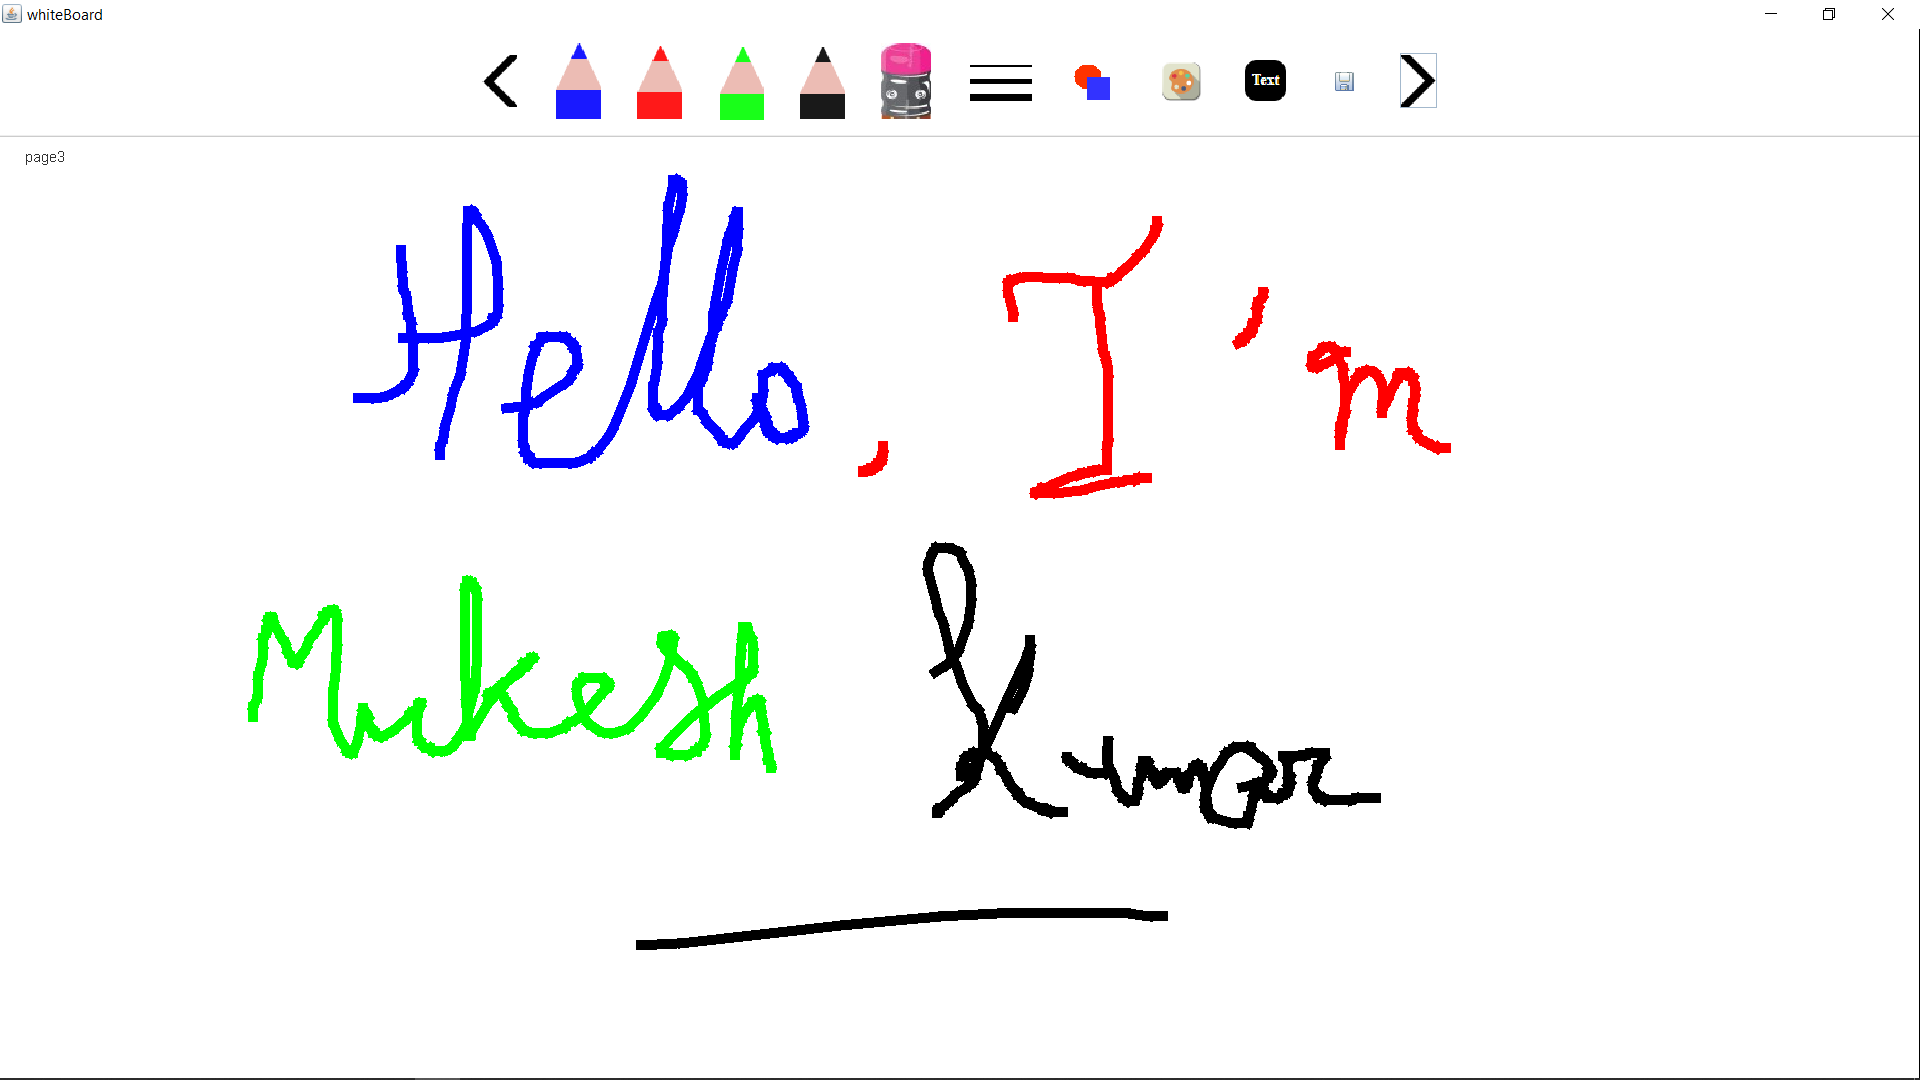 whiteBoard
Text
page3
Hello, I'm
Mukesh Kumar